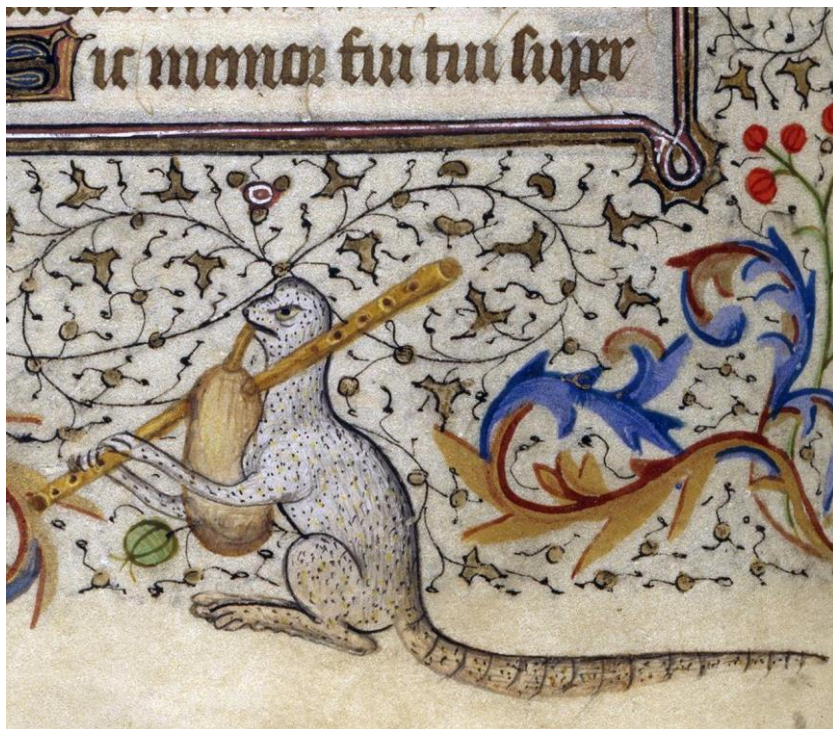 Sic memor fui tui super